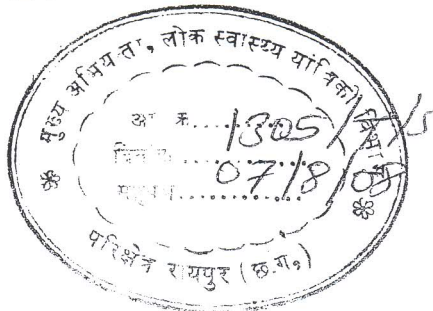 मुख्य अभियंता, लोक स्वास्थ्य यांत्रिकी विभाग
क्र......1305/
07/8/09
परिक्षेत्र रायपुर (छ.ग.)